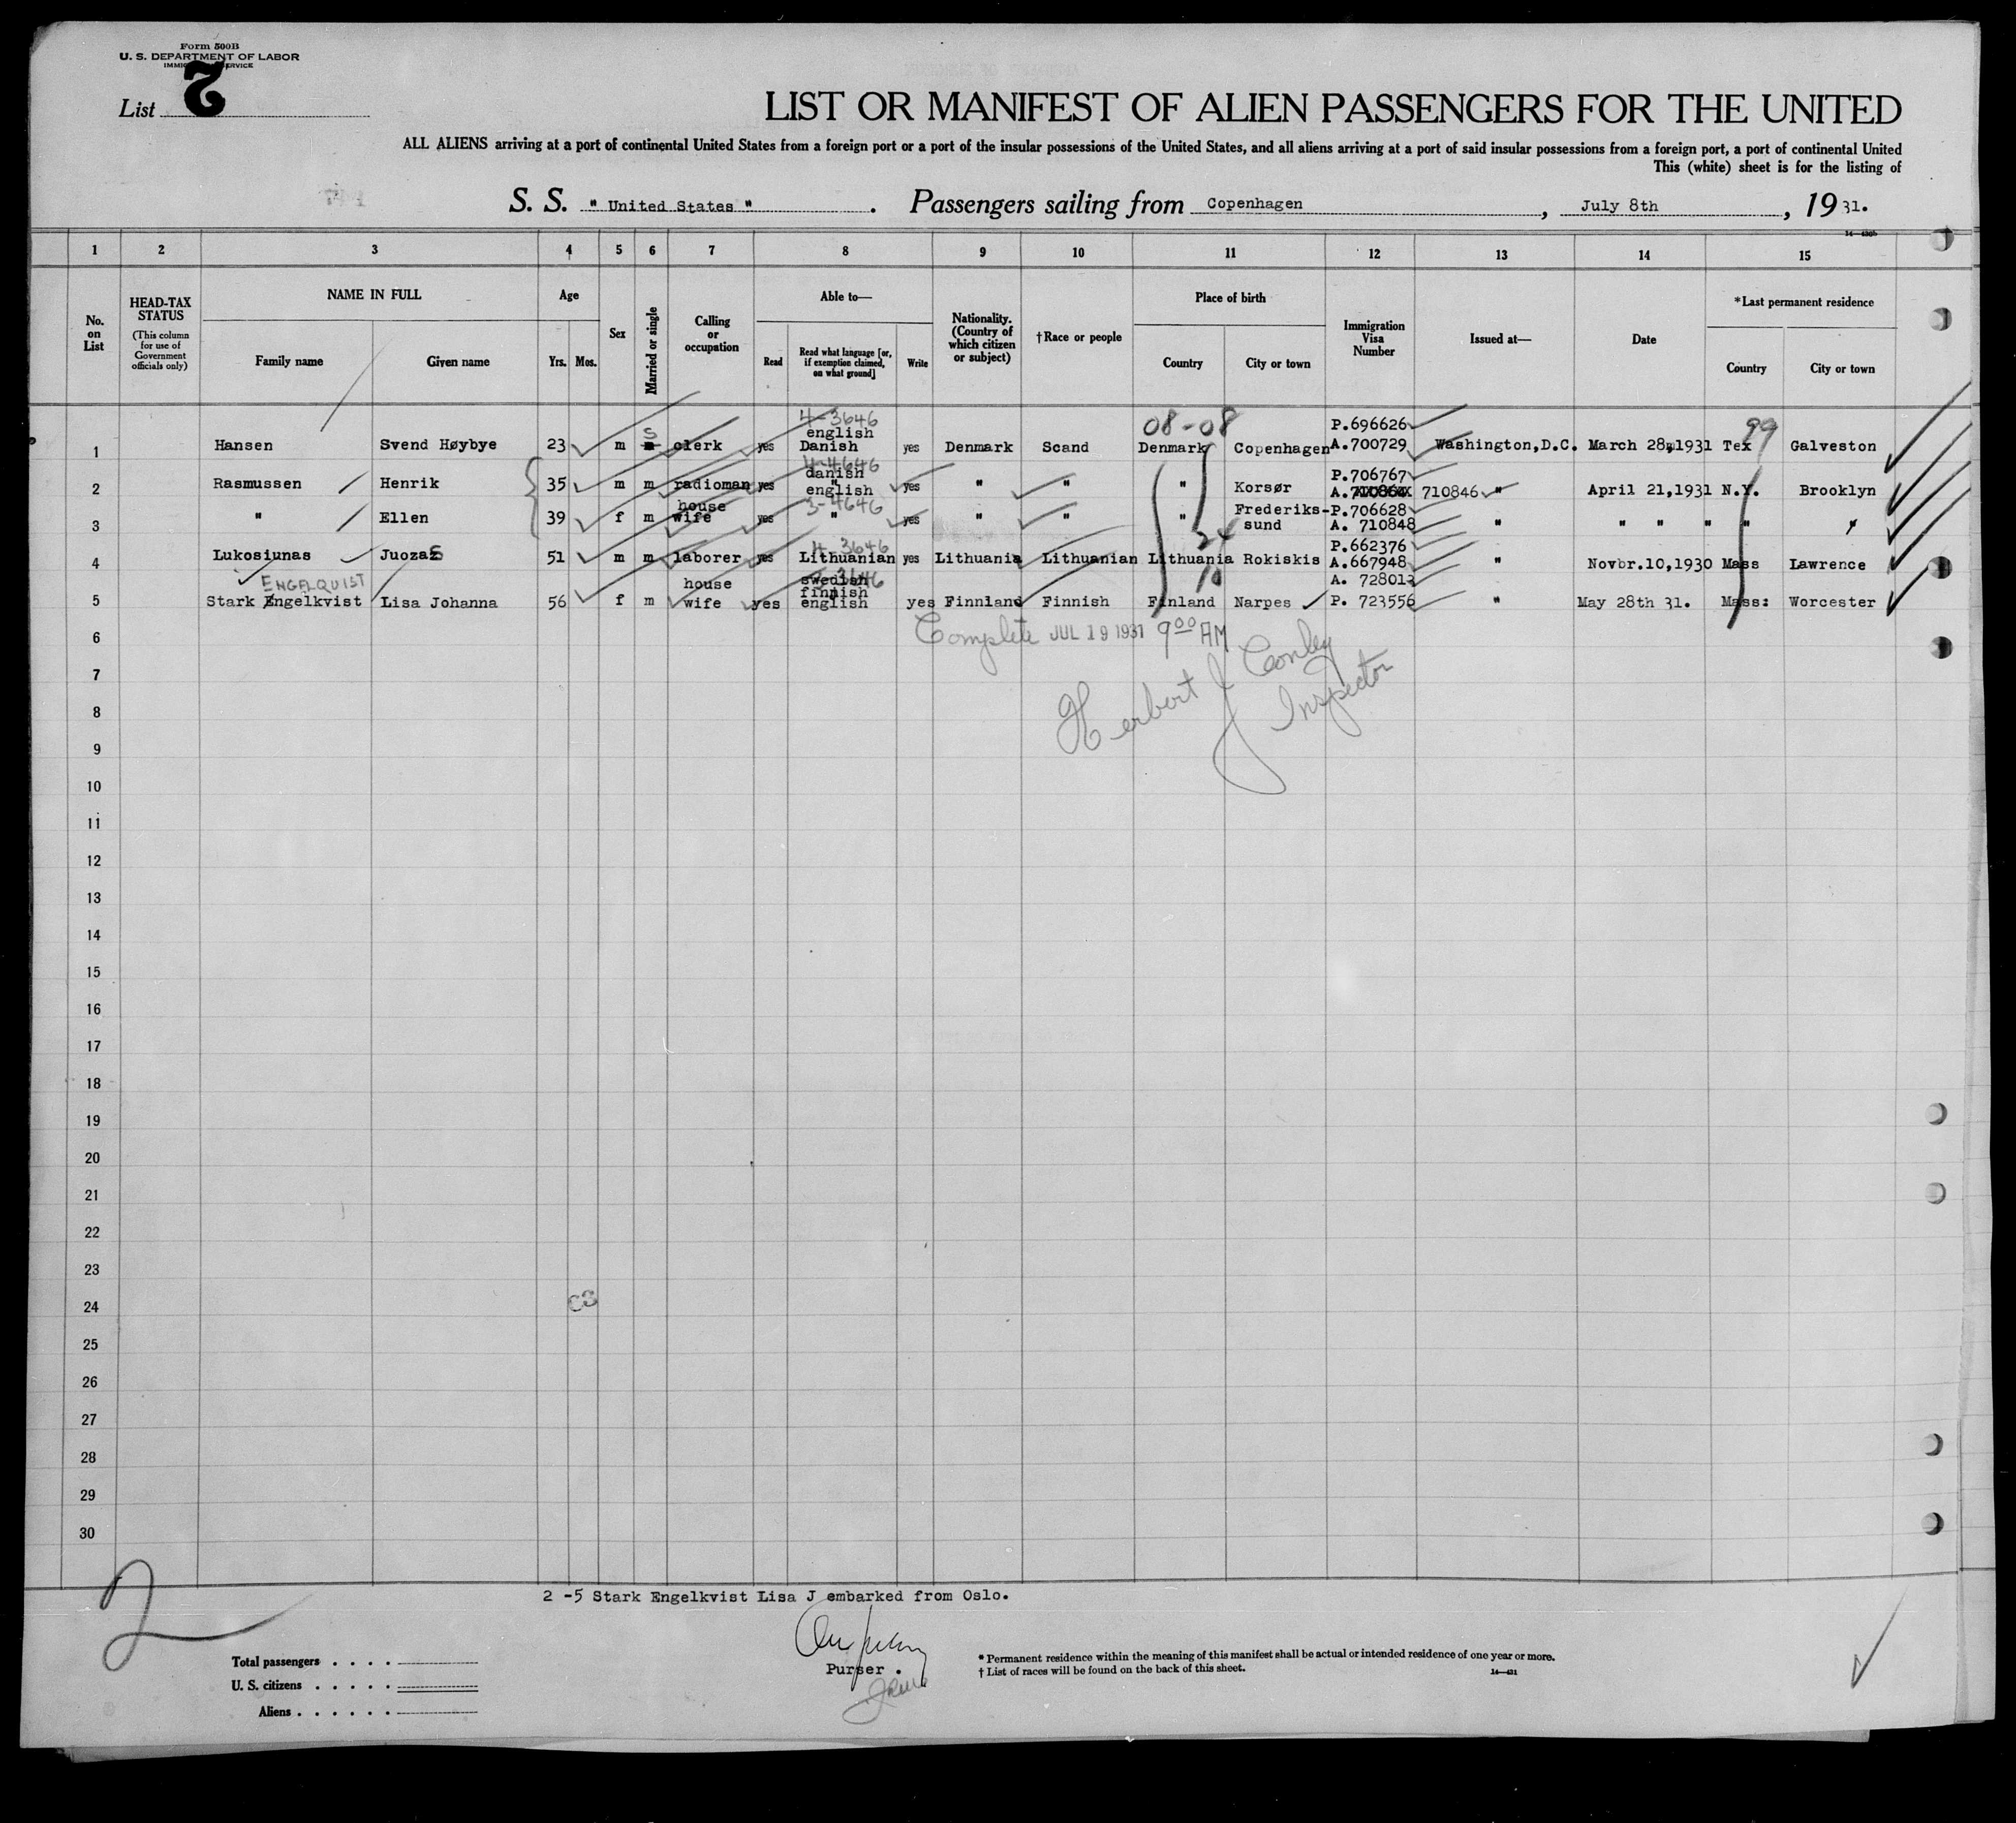 Form 500B
U. S. DEPARTMENT OF LABOR
List 2
LIST OR MANIFEST OF ALIEN PASSENGERS FOR THE UNITED
ALL ALIENS arriving at a port of continental United States from a foreign port or a port of the insular possessions of the United States, and all aliens arriving at a port of said insular possessions from a foreign port, a port of continental United
This (white) sheet is for the listing of
S. S. " United States " . Passengers sailing from Copenhagen , July 8th , 19 31.
1 2 3 4 5 6 7 8 9 10 11 12 13 14 15
No. on List
HEAD-TAX STATUS
(This column for use of Government officials only)
NAME IN FULL
Family name Given name
Age
Yrs. Mos.
Sex
Married or single
Calling or occupation
Able to—
Read Read what language [or, if exemption claimed, on what ground] Write
Nationality. (Country of which citizen or subject)
†Race or people
Place of birth
Country City or town
Immigration Visa Number
Issued at—
Date
*Last permanent residence
Country City or town
4-3646 08-08 P.696626 99
s english
1 Hansen Svend Høybye 23 m m clerk yes Danish yes Denmark Scand Denmark Copenhagen A.700729 Washington,D.C. March 28,1931 Tex Galveston
4-4646
danish P.706767
2 Rasmussen Henrik 35 m m radioman yes english yes " " " Korsør A. 710846 " April 21,1931 N.Y. Brooklyn
house 3-4646 Frederiks- P.706628
3 " Ellen 39 f m wife yes " yes " " " sund A. 710848 " " " " " "
4-3646 24 P.662376
4 Lukosiunas Juozas 51 m m laborer yes Lithuanian yes Lithuania Lithuanian Lithuania Rokiskis A.667948 " Novbr.10,1930 Mass Lawrence
ENGELQUIST house swedish finnish 10 A. 728012
5 Stark Engelkvist Lisa Johanna 56 f m wife yes english yes Finnland Finnish Finland Narpes P. 723556 " May 28th 31. Mass: Worcester
6 Complete JUL 19 1931 9⁰⁰ AM
7 Herbert J Conley
Inspector
8
9
10
11
12
13
14
15
16
17
18
19
20
21
22
23
24
25
26
27
28
29
30
2
2 -5 Stark Engelkvist Lisa J embarked from Oslo.
Purser .
Total passengers . . . .
U. S. citizens . . . . .
Aliens . . . . . .
* Permanent residence within the meaning of this manifest shall be actual or intended residence of one year or more.
† List of races will be found on the back of this sheet.
14—431